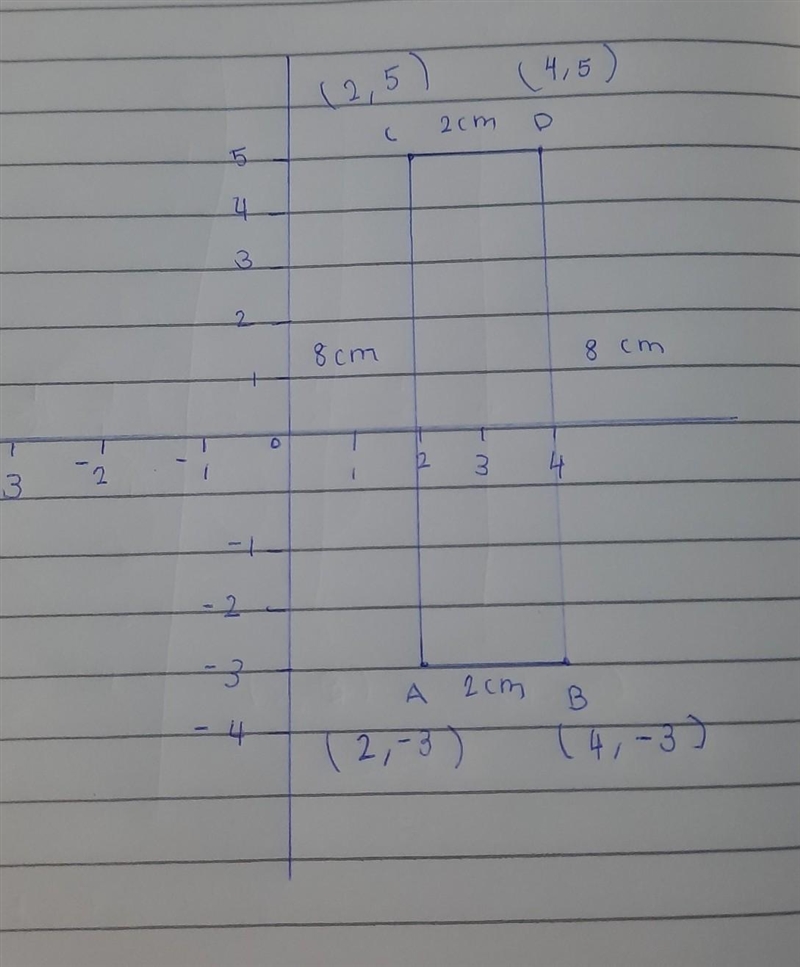 (2,5) (4,5)
C 2cm D
5
4
3
2
8cm 8 cm
1
0
3 -2 -1 1 2 3 4
-1
-2
-3
A 2cm B
-4 (2,-3) (4,-3)